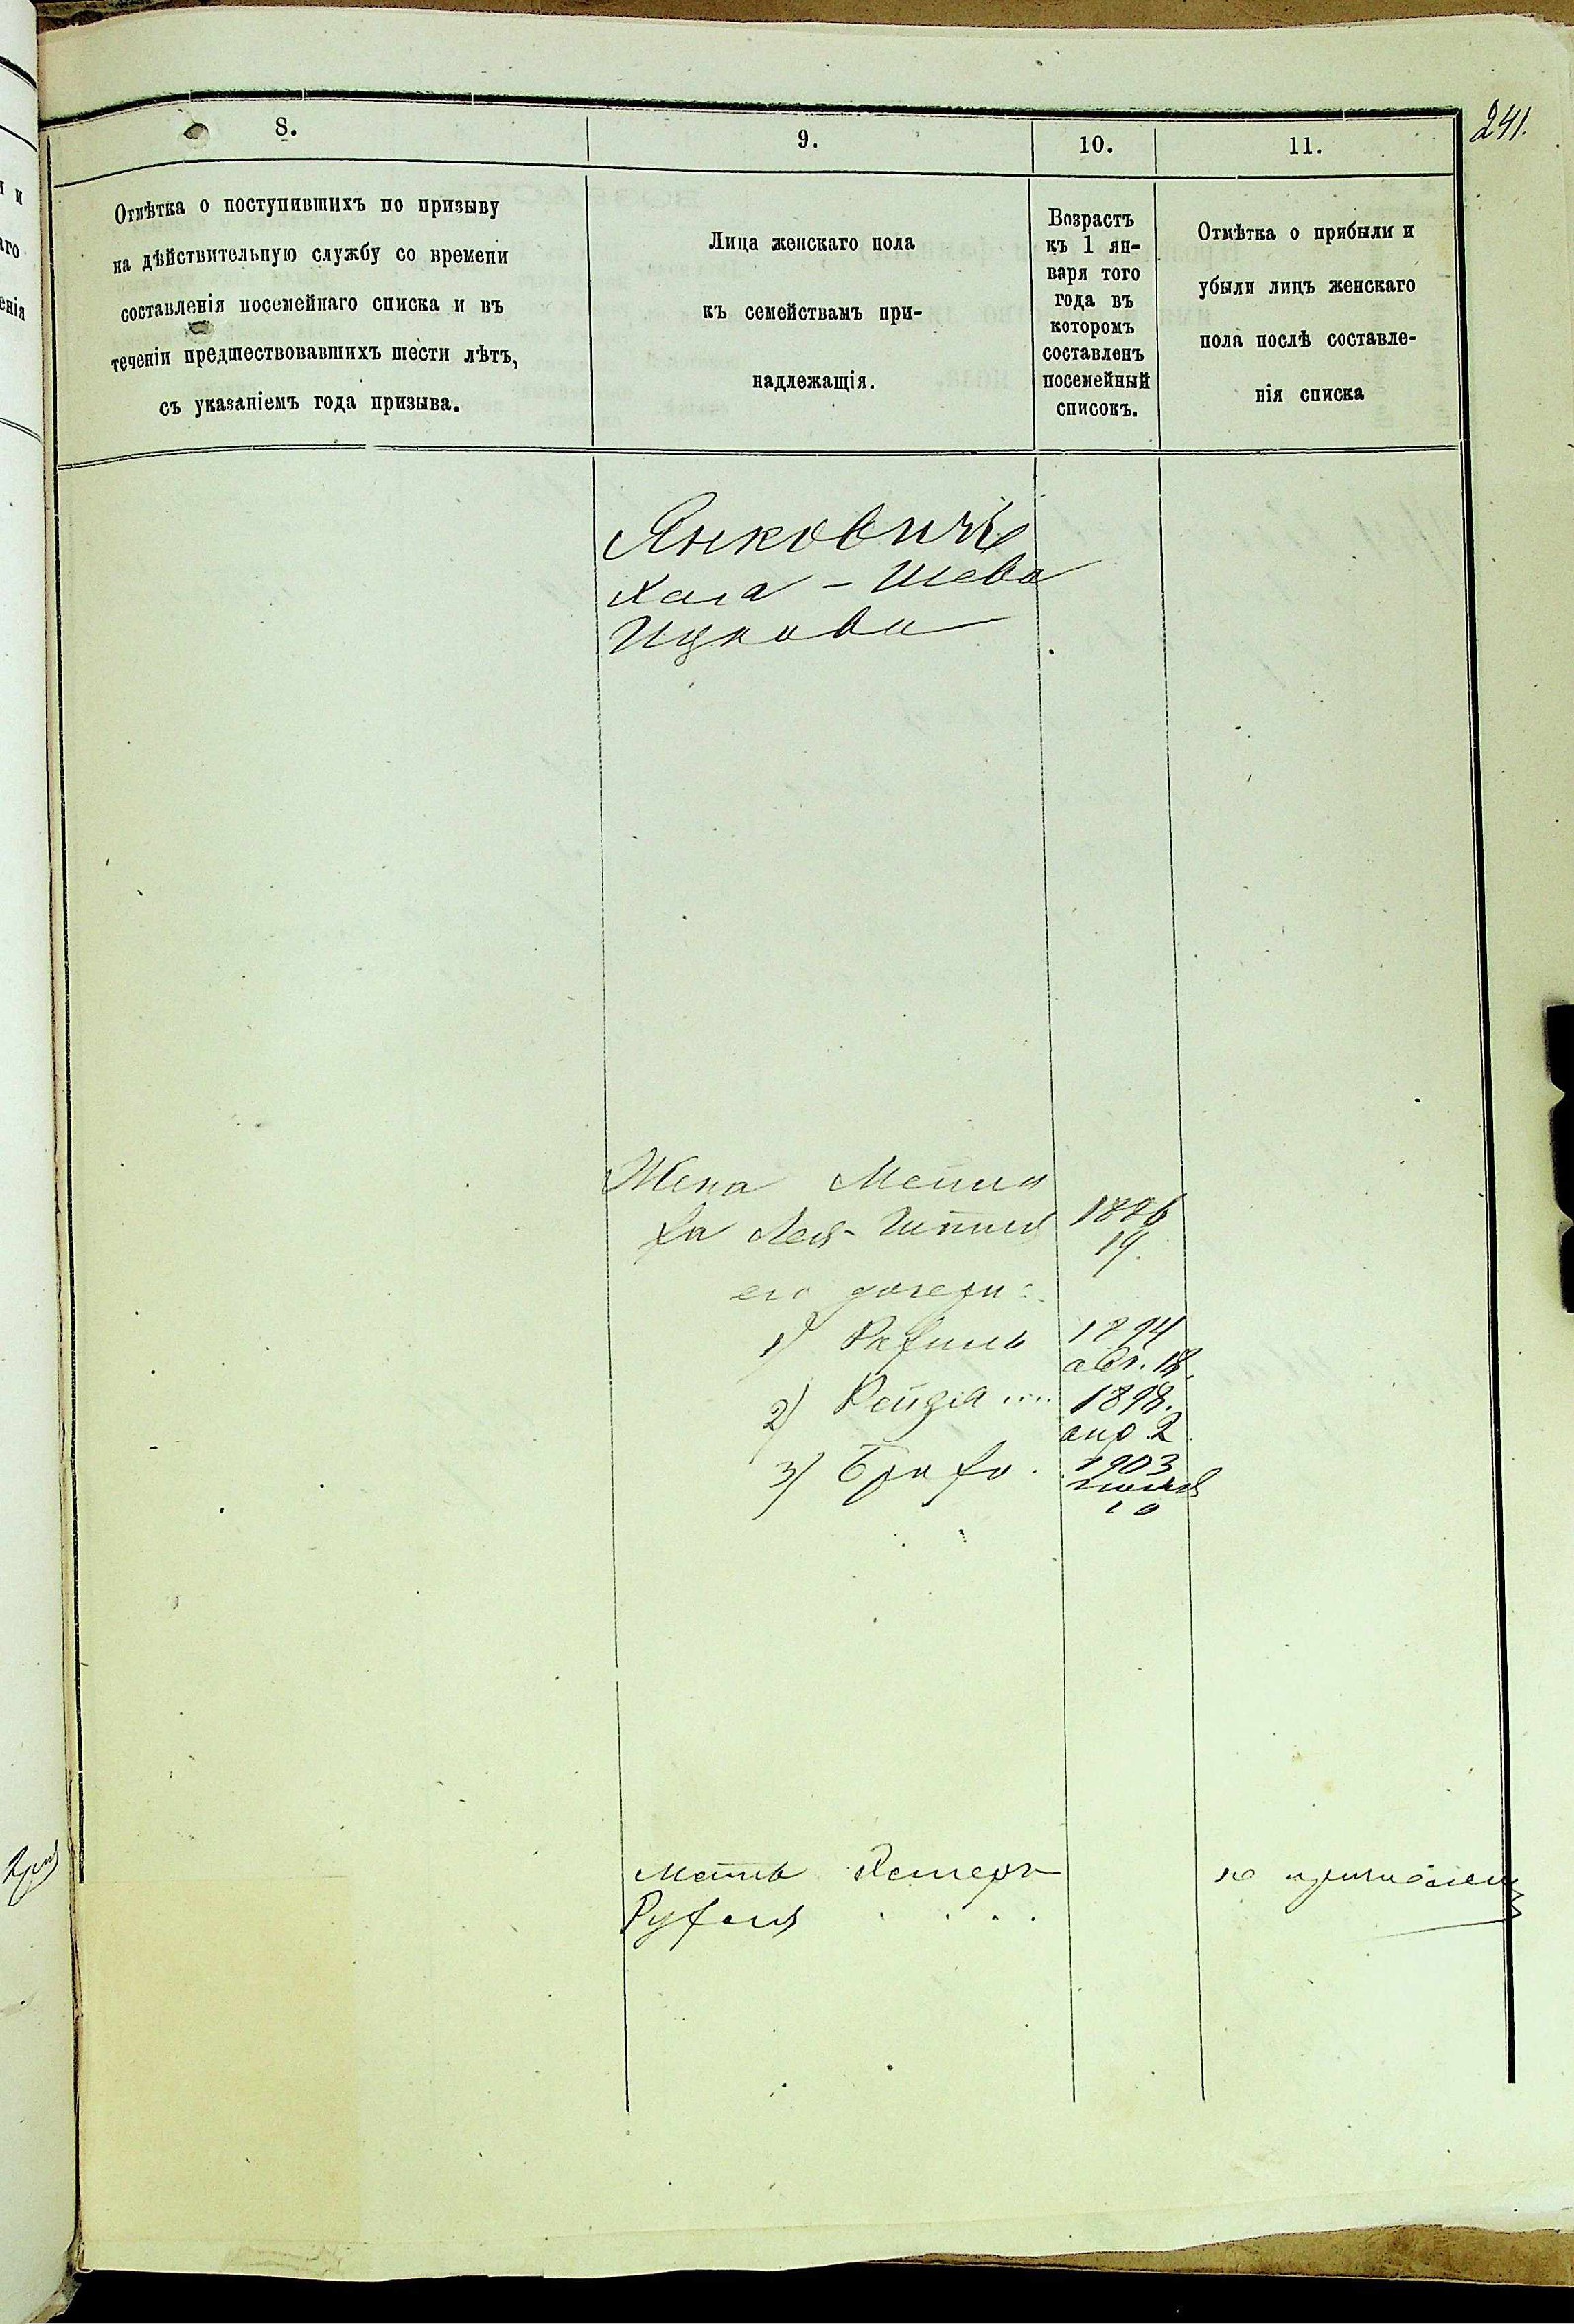 241.
8.
9.
10.
11.
Отмѣтка о поступившихъ по призыву
на дѣйствительную службу со времени
составленія посемейнаго списка и въ
теченіи предшествовавшихъ шести лѣтъ,
съ указаніемъ года призыва.
Лица женскаго пола
къ семействамъ при-
надлежащія.
Возрастъ
къ 1 ян-
варя того
года въ
которомъ
составленъ
посемейный
списокъ.
Отмѣтка о прибыли и
убыли лицъ женскаго
пола послѣ составле-
нія списка
Янковичъ
Хая - Шева
Ицкова
Жена
ха Лея-
19
его дочери:
1) Рахиль 1894
авг. 18.
2) Рейзя 1898.
апр 2
3) Браха. 1903
10
Мать Эстеръ